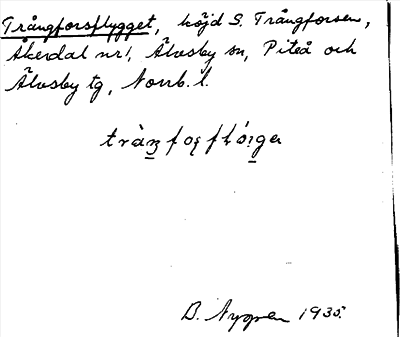 Trångforsflygget, höjd S. Trångforsen,
Åkerdal nr 1, Älvsby sn, Piteå och
Älvsby tg, Norrb. l.
B. Nygren 1935.